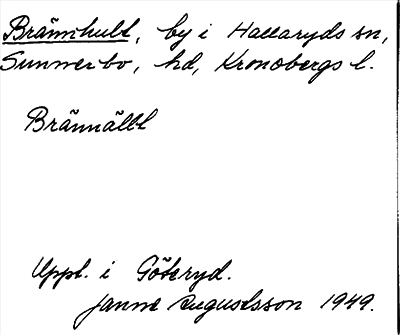 Brännhult, by i Hallaryds sn,
Sunnerbo, hd, Kronobergs l.
Brännällt
Uppt. i Göteryd.
Janne Augustsson 1949.